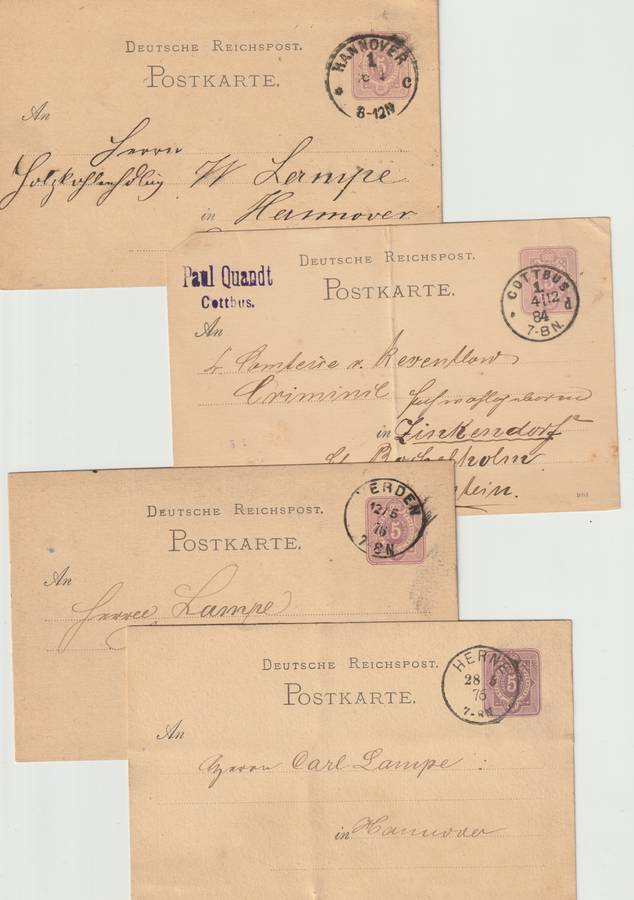 DEUTSCHE REICHSPOST.
POSTKARTE.
HANNOVER
1.
C
8-12N
An
Herrn
Holzkohlenhdlg W Lampe
in Hannover
DEUTSCHE REICHSPOST.
POSTKARTE.
Paul Quandt
Cottbus.
COTTBUS.
1.
4 12
84
7-8N.
An
Comtesse v. Reventlow
Criminil
in Zinkendorf
DEUTSCHE REICHSPOST.
POSTKARTE.
ERDEN
12/5
76
7-8N
5
An
Herrn Lampe
DEUTSCHE REICHSPOST.
POSTKARTE.
HERNE
28 5
76
7-8N
5
An
Herrn Carl Lampe
in Hannover